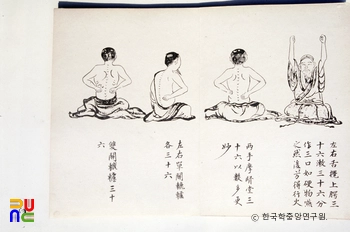 左右舌攪上腭三
十六漱三十六分
作三口如硬物嚥
之然後方得行火
兩手摩腎堂三
十六以數多更
妙
左右單關轆轤
各三十六
雙關轆轤三十
六
ⓒ 한국학중앙연구원